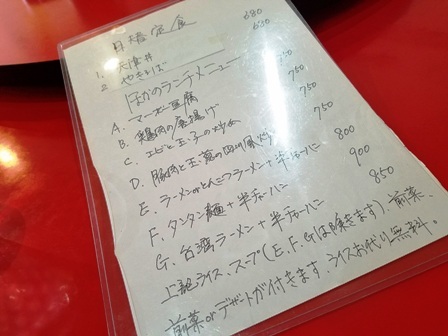 日替定食
1. 天津丼 680
2. やきそば 630
ほかのランチメニュー
A. マーボー豆腐
B. 鶏肉の唐揚げ 750
C. エビと玉子の炒め 750
D. 豚肉と玉葱の四川風炒 750
E. ラーメンorとんこつラーメン+半チャーハン 800
F. タンタン麺+半チャーハン 900
G. 台湾ラーメン+半チャーハン 850
上記ライス、スープ(E.F.Gは除きます)、前菜、
前菜orデザートが付きます、ライスお代り無料。